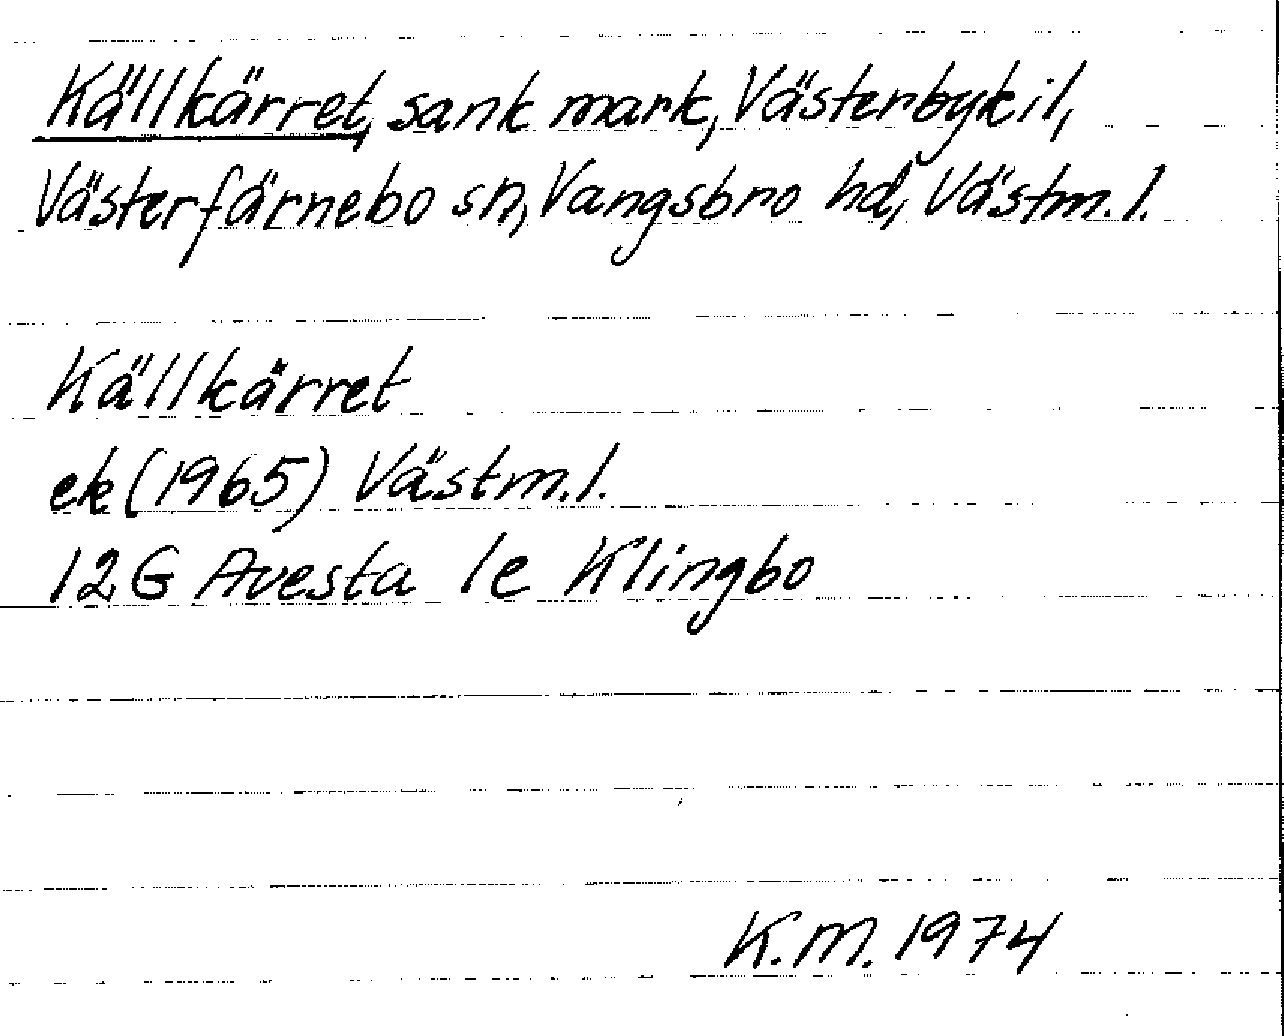 Källkärret, sank mark, Västerbykil,
Västerfärnebo sn, Vangsbro hd, Västm.l.
Källkärret
ek (1965) Västm.l.
12G Avesta 1e Klingbo
K.M. 1974